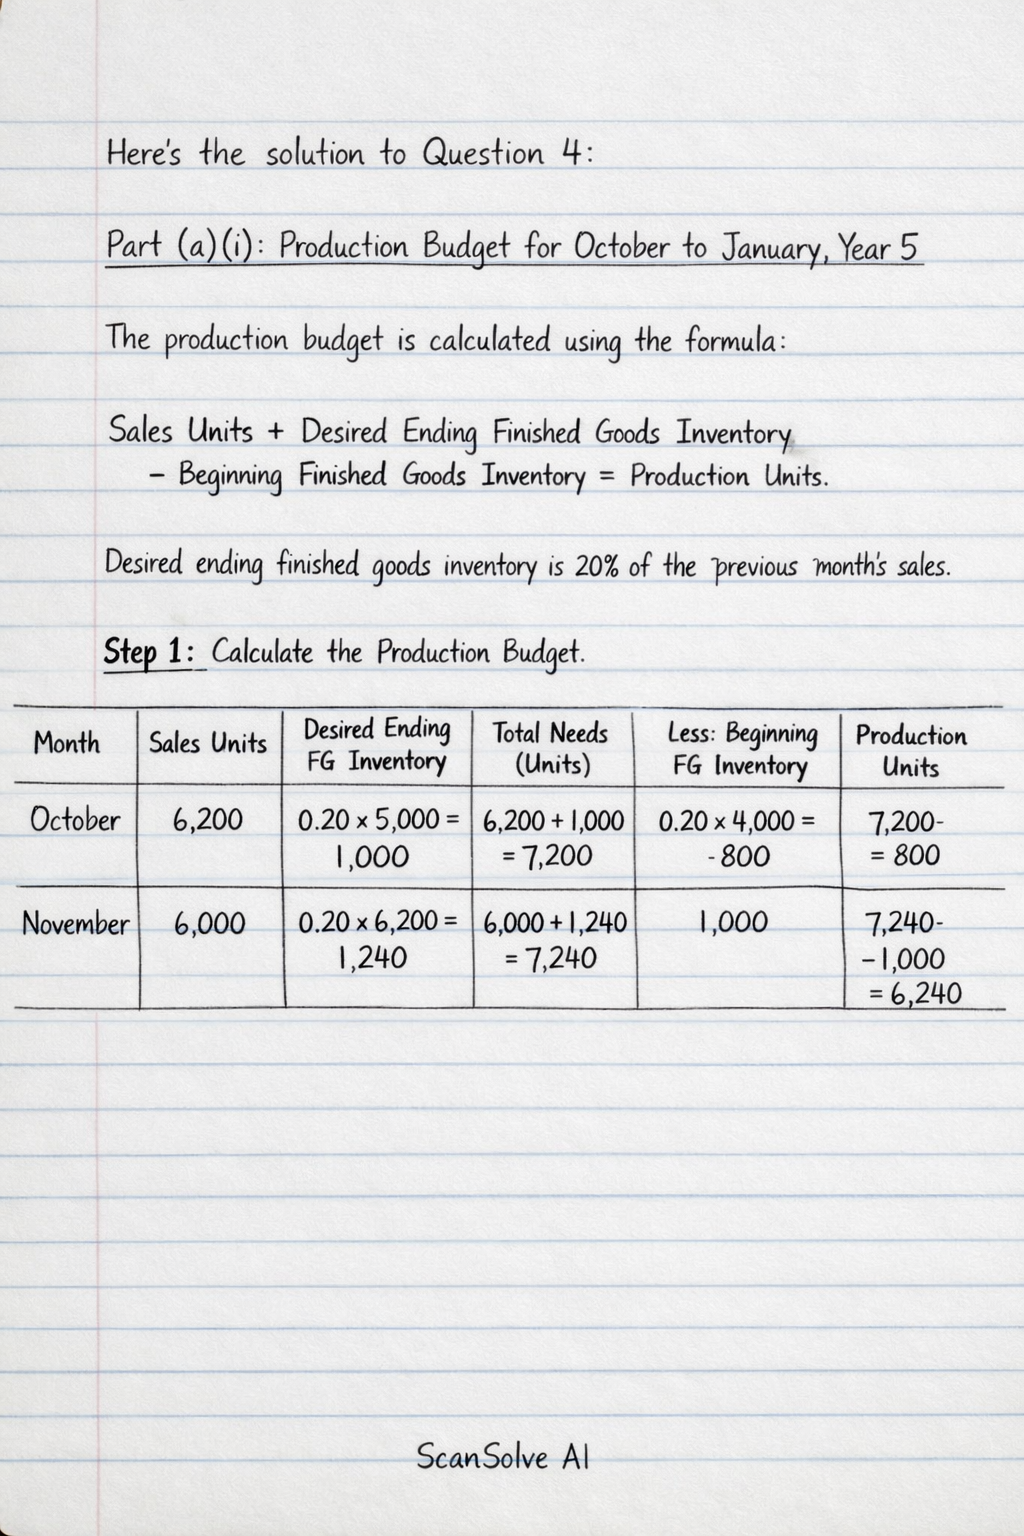 Here's the solution to Question 4:
Part (a)(i): Production Budget for October to January, Year 5
The production budget is calculated using the formula:
Sales Units + Desired Ending Finished Goods Inventory
– Beginning Finished Goods Inventory = Production Units.
Desired ending finished goods inventory is 20% of the previous month's sales.
Step 1: Calculate the Production Budget.
Month Sales Units Desired Ending FG Inventory Total Needs (Units) Less: Beginning FG Inventory Production Units
October 6,200 0.20 x 5,000 = 1,000 6,200 + 1,000 = 7,200 0.20 x 4,000 = -800 7,200- = 800
November 6,000 0.20 x 6,200 = 1,240 6,000 + 1,240 = 7,240 1,000 7,240- -1,000 = 6,240
ScanSolve AI